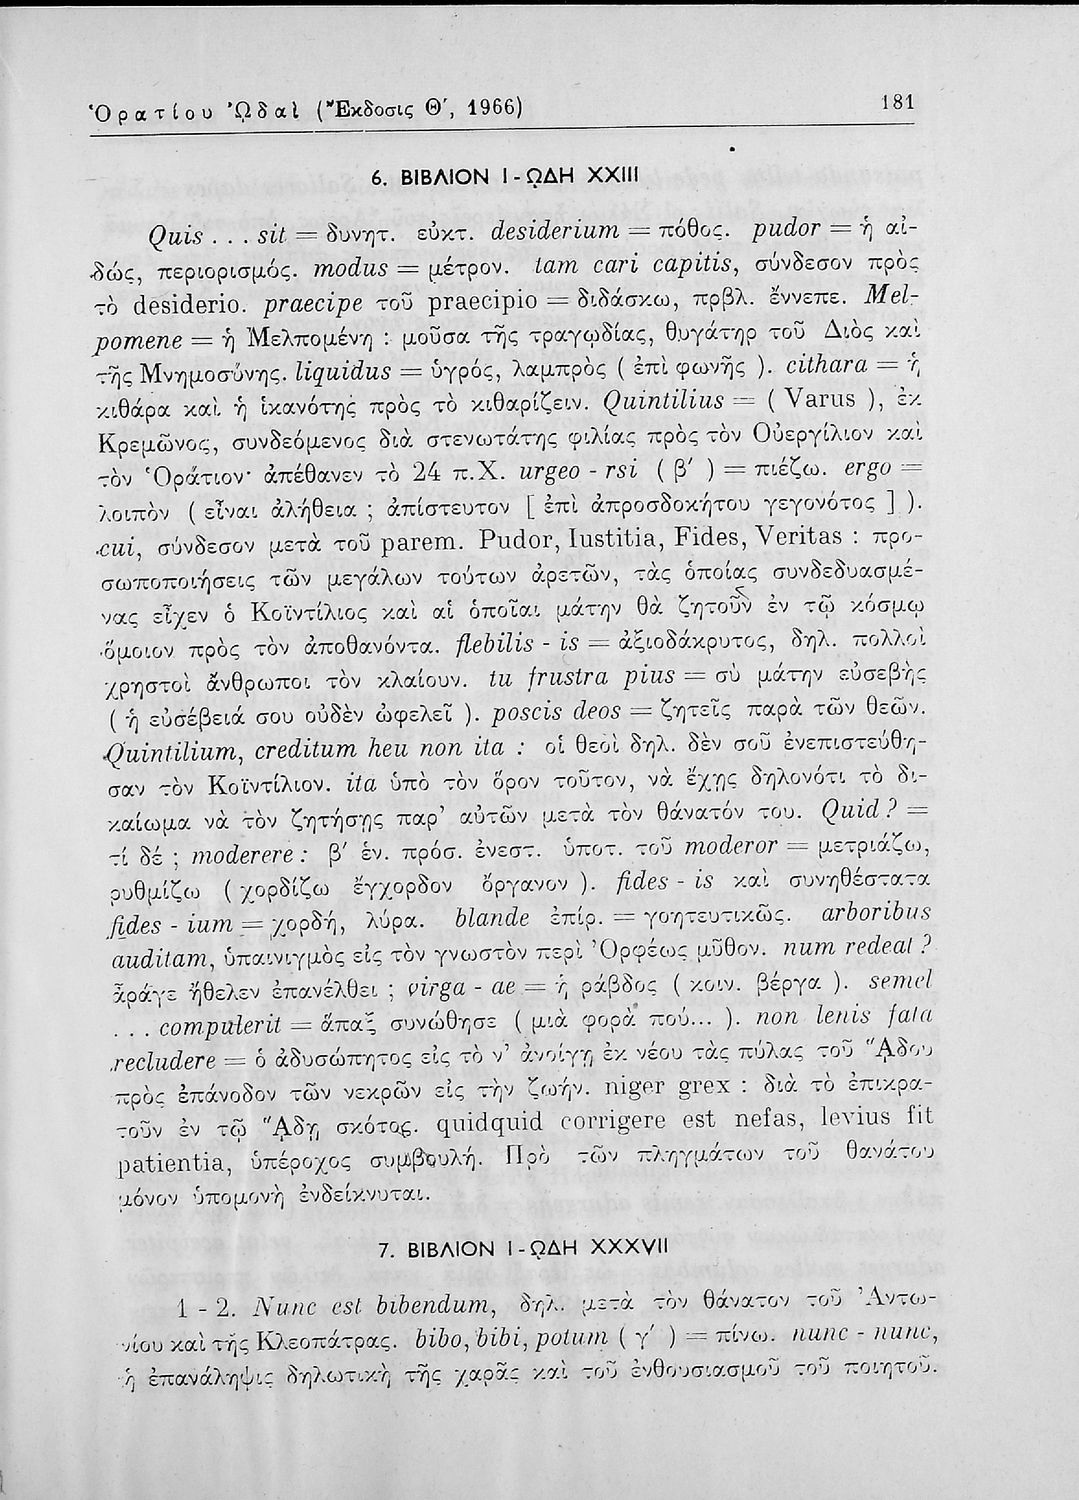 Ὁρατίου Ὠδαὶ (Ἔκδοσις Θ′, 1966) 181
6. ΒΙΒΛΙΟΝ Ι - ΩΔΗ XXIII
Quis . . . sit = δυνητ. εὐκτ. desiderium = πόθος. pudor = ἡ αἰ-
δώς, περιορισμός. modus = μέτρον. tam cari capitis, σύνδεσον πρὸς
τὸ desiderio. praecipe τοῦ praecipio = διδάσκω, πρβλ. ἔννεπε. Mel-
pomene = ἡ Μελπομένη : μοῦσα τῆς τραγῳδίας, θυγάτηρ τοῦ Διὸς καὶ
τῆς Μνημοσύνης. liquidus = ὑγρός, λαμπρὸς ( ἐπὶ φωνῆς ). cithara = ἡ
κιθάρα καὶ ἡ ἱκανότης πρὸς τὸ κιθαρίζειν. Quintilius = ( Varus ), ἐκ
Κρεμῶνος, συνδεόμενος διὰ στενωτάτης φιλίας πρὸς τὸν Οὐεργίλιον καὶ
τὸν Ὁράτιον· ἀπέθανεν τὸ 24 π.Χ. urgeo - rsi ( β′ ) = πιέζω. ergo =
λοιπὸν ( εἶναι ἀλήθεια ; ἀπίστευτον [ ἐπὶ ἀπροσδοκήτου γεγονότος ] ).
cui, σύνδεσον μετὰ τοῦ parem. Pudor, Iustitia, Fides, Veritas : προ-
σωποποιήσεις τῶν μεγάλων τούτων ἀρετῶν, τὰς ὁποίας συνδεδυασμέ-
νας εἶχεν ὁ Κοϊντίλιος καὶ αἱ ὁποῖαι μάτην θὰ ζητοῦν ἐν τῷ κόσμῳ
ὅμοιον πρὸς τὸν ἀποθανόντα. flebilis - is = ἀξιοδάκρυτος, δηλ. πολλοὶ
χρηστοὶ ἄνθρωποι τὸν κλαίουν. tu frustra pius = σὺ μάτην εὐσεβὴς
( ἡ εὐσέβειά σου οὐδὲν ὠφελεῖ ). poscis deos = ζητεῖς παρὰ τῶν θεῶν.
Quintilium, creditum heu non ita : οἱ θεοὶ δηλ. δὲν σοῦ ἐνεπιστεύθη-
σαν τὸν Κοϊντίλιον. ita ὑπὸ τὸν ὅρον τοῦτον, νὰ ἔχῃς δηλονότι τὸ δι-
καίωμα νὰ τὸν ζητήσῃς παρ’ αὐτῶν μετὰ τὸν θάνατόν του. Quid ? =
τί δέ ; moderere : β′ ἑν. πρόσ. ἐνεστ. ὑποτ. τοῦ moderor = μετριάζω,
ρυθμίζω ( χορδίζω ἔγχορδον ὄργανον ). fides - is καὶ συνηθέστατα
fides - ium = χορδή, λύρα. blande ἐπίρ. = γοητευτικῶς. arboribus
auditam, ὑπαινιγμὸς εἰς τὸν γνωστὸν περὶ Ὀρφέως μῦθον. num redeat ?
ἆράγε ἤθελεν ἐπανέλθει ; virga - ae = ἡ ράβδος ( κοιν. βέργα ). semel
. . . compulerit = ἅπαξ συνώθησε ( μιὰ φορὰ πού... ). non lenis fata
recludere = ὁ ἀδυσώπητος εἰς τὸ ν’ ἀνοίγῃ ἐκ νέου τὰς πύλας τοῦ ᾍδου
πρὸς ἐπάνοδον τῶν νεκρῶν εἰς τὴν ζωήν. niger grex : διὰ τὸ ἐπικρα-
τοῦν ἐν τῷ ᾍδῃ σκότος. quidquid corrigere est nefas, levius fit
patientia, ὑπέροχος συμβουλή. Πρὸ τῶν πληγμάτων τοῦ θανάτου
μόνον ὑπομονὴ ἐνδείκνυται.
7. ΒΙΒΛΙΟΝ Ι - ΩΔΗ XXXVII
1 - 2. Nunc est bibendum, δηλ. μετὰ τὸν θάνατον τοῦ Ἀντω-
νίου καὶ τῆς Κλεοπάτρας. bibo, bibi, potum ( γ′ ) = πίνω. nunc - nunc,
ἡ ἐπανάληψις δηλωτικὴ τῆς χαρᾶς καὶ τοῦ ἐνθουσιασμοῦ τοῦ ποιητοῦ.